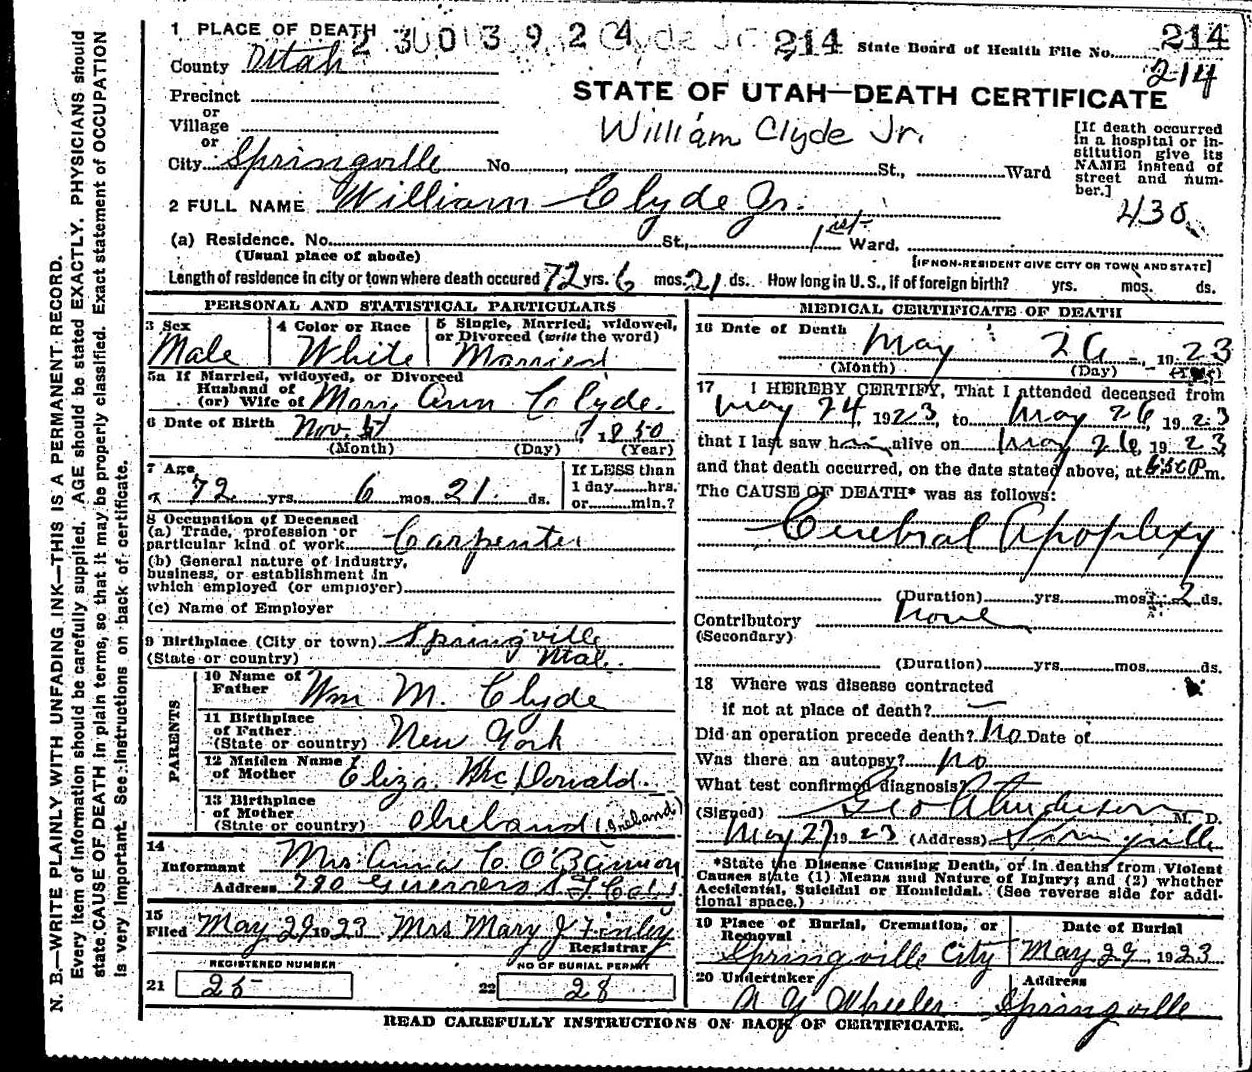 1 PLACE OF DEATH 23003924 Clyde Jr. 214 State Board of Health File No. 214
County Utah 214
Precinct
or
STATE OF UTAH—DEATH CERTIFICATE
Village
or
William Clyde Jr.
[If death occurred in a hospital or institution give its NAME instead of street and number.]
City Springville No. St., Ward
2 FULL NAME William Clyde Jr. 430
(a) Residence. No. St., 1st Ward,
(Usual place of abode) [IF NON-RESIDENT GIVE CITY OR TOWN AND STATE]
Length of residence in city or town where death occured 72 yrs. 6 mos. 21 ds. How long in U. S., if of foreign birth? yrs. mos. ds.
PERSONAL AND STATISTICAL PARTICULARS
3 Sex
Male
4 Color or Race
White
5 Single, Married, widowed,
or Divorced (write the word)
Married
5a If Married, widowed, or Divorced
Husband of
(or) Wife of Mary Ann Clyde.
6 Date of Birth Nov 1850
(Month) (Day) (Year)
7 Age
72 yrs. 6 mos. 21 ds.
If LESS than
1 day hrs.
or min.?
8 Occupation of Deceased
(a) Trade, profession or
particular kind of work Carpenter
(b) General nature of industry,
business, or establishment in
which employed (or employer)
(c) Name of Employer
9 Birthplace (City or town) Springville
(State or country) Utah.
PARENTS
10 Name of
Father Wm M. Clyde
11 Birthplace
of Father
(State or country) New York
12 Maiden Name
of Mother Eliza McDonald.
13 Birthplace
of Mother
(State or country) Ireland (Ireland)
14
Informant Mrs Anna C. O'Bannion
Address 780 Guerrero S. F. Cal
15
Filed May 29 1923 Mrs Mary J Finley
Registrar
REGISTERED NUMBER NO OF BURIAL PERMIT
21 25 22 28
MEDICAL CERTIFICATE OF DEATH
16 Date of Death May 26, 1923
(Month) (Day) (Year)
17 I HEREBY CERTIFY, That I attended deceased from
May 24, 1923, to May 26, 1923
that I last saw him alive on May 26, 1923
and that death occurred, on the date stated above, at P m.
The CAUSE OF DEATH* was as follows:
Cerebral Apoplexy
(Duration) yrs. mos. 2 ds.
Contributory None
(Secondary)
(Duration) yrs. mos. ds.
18 Where was disease contracted
if not at place of death? —
Did an operation precede death? No Date of
Was there an autopsy? No
What test confirmed diagnosis?
(Signed) Geo Anderson M. D.
May 27 1923 (Address) Springville
*State the Disease Causing Death, or in deaths from Violent
Causes state (1) Means and Nature of Injury; and (2) whether
Accidental, Suicidal or Homicidal. (See reverse side for addi-
tional space.)
19 Place of Burial, Cremation, or
Removal
Springville City
Date of Burial
May 29, 1923
20 Undertaker
A. Y. Wheeler
Address
Springville
READ CAREFULLY INSTRUCTIONS ON BACK OF CERTIFICATE.
N. B.—WRITE PLAINLY WITH UNFADING INK—THIS IS A PERMANENT RECORD.
Every item of information should be carefully supplied. AGE should be stated EXACTLY. PHYSICIANS should
state CAUSE OF DEATH in plain terms, so that it may be properly classified. Exact statement of OCCUPATION
is very important. See instructions on back of certificate.